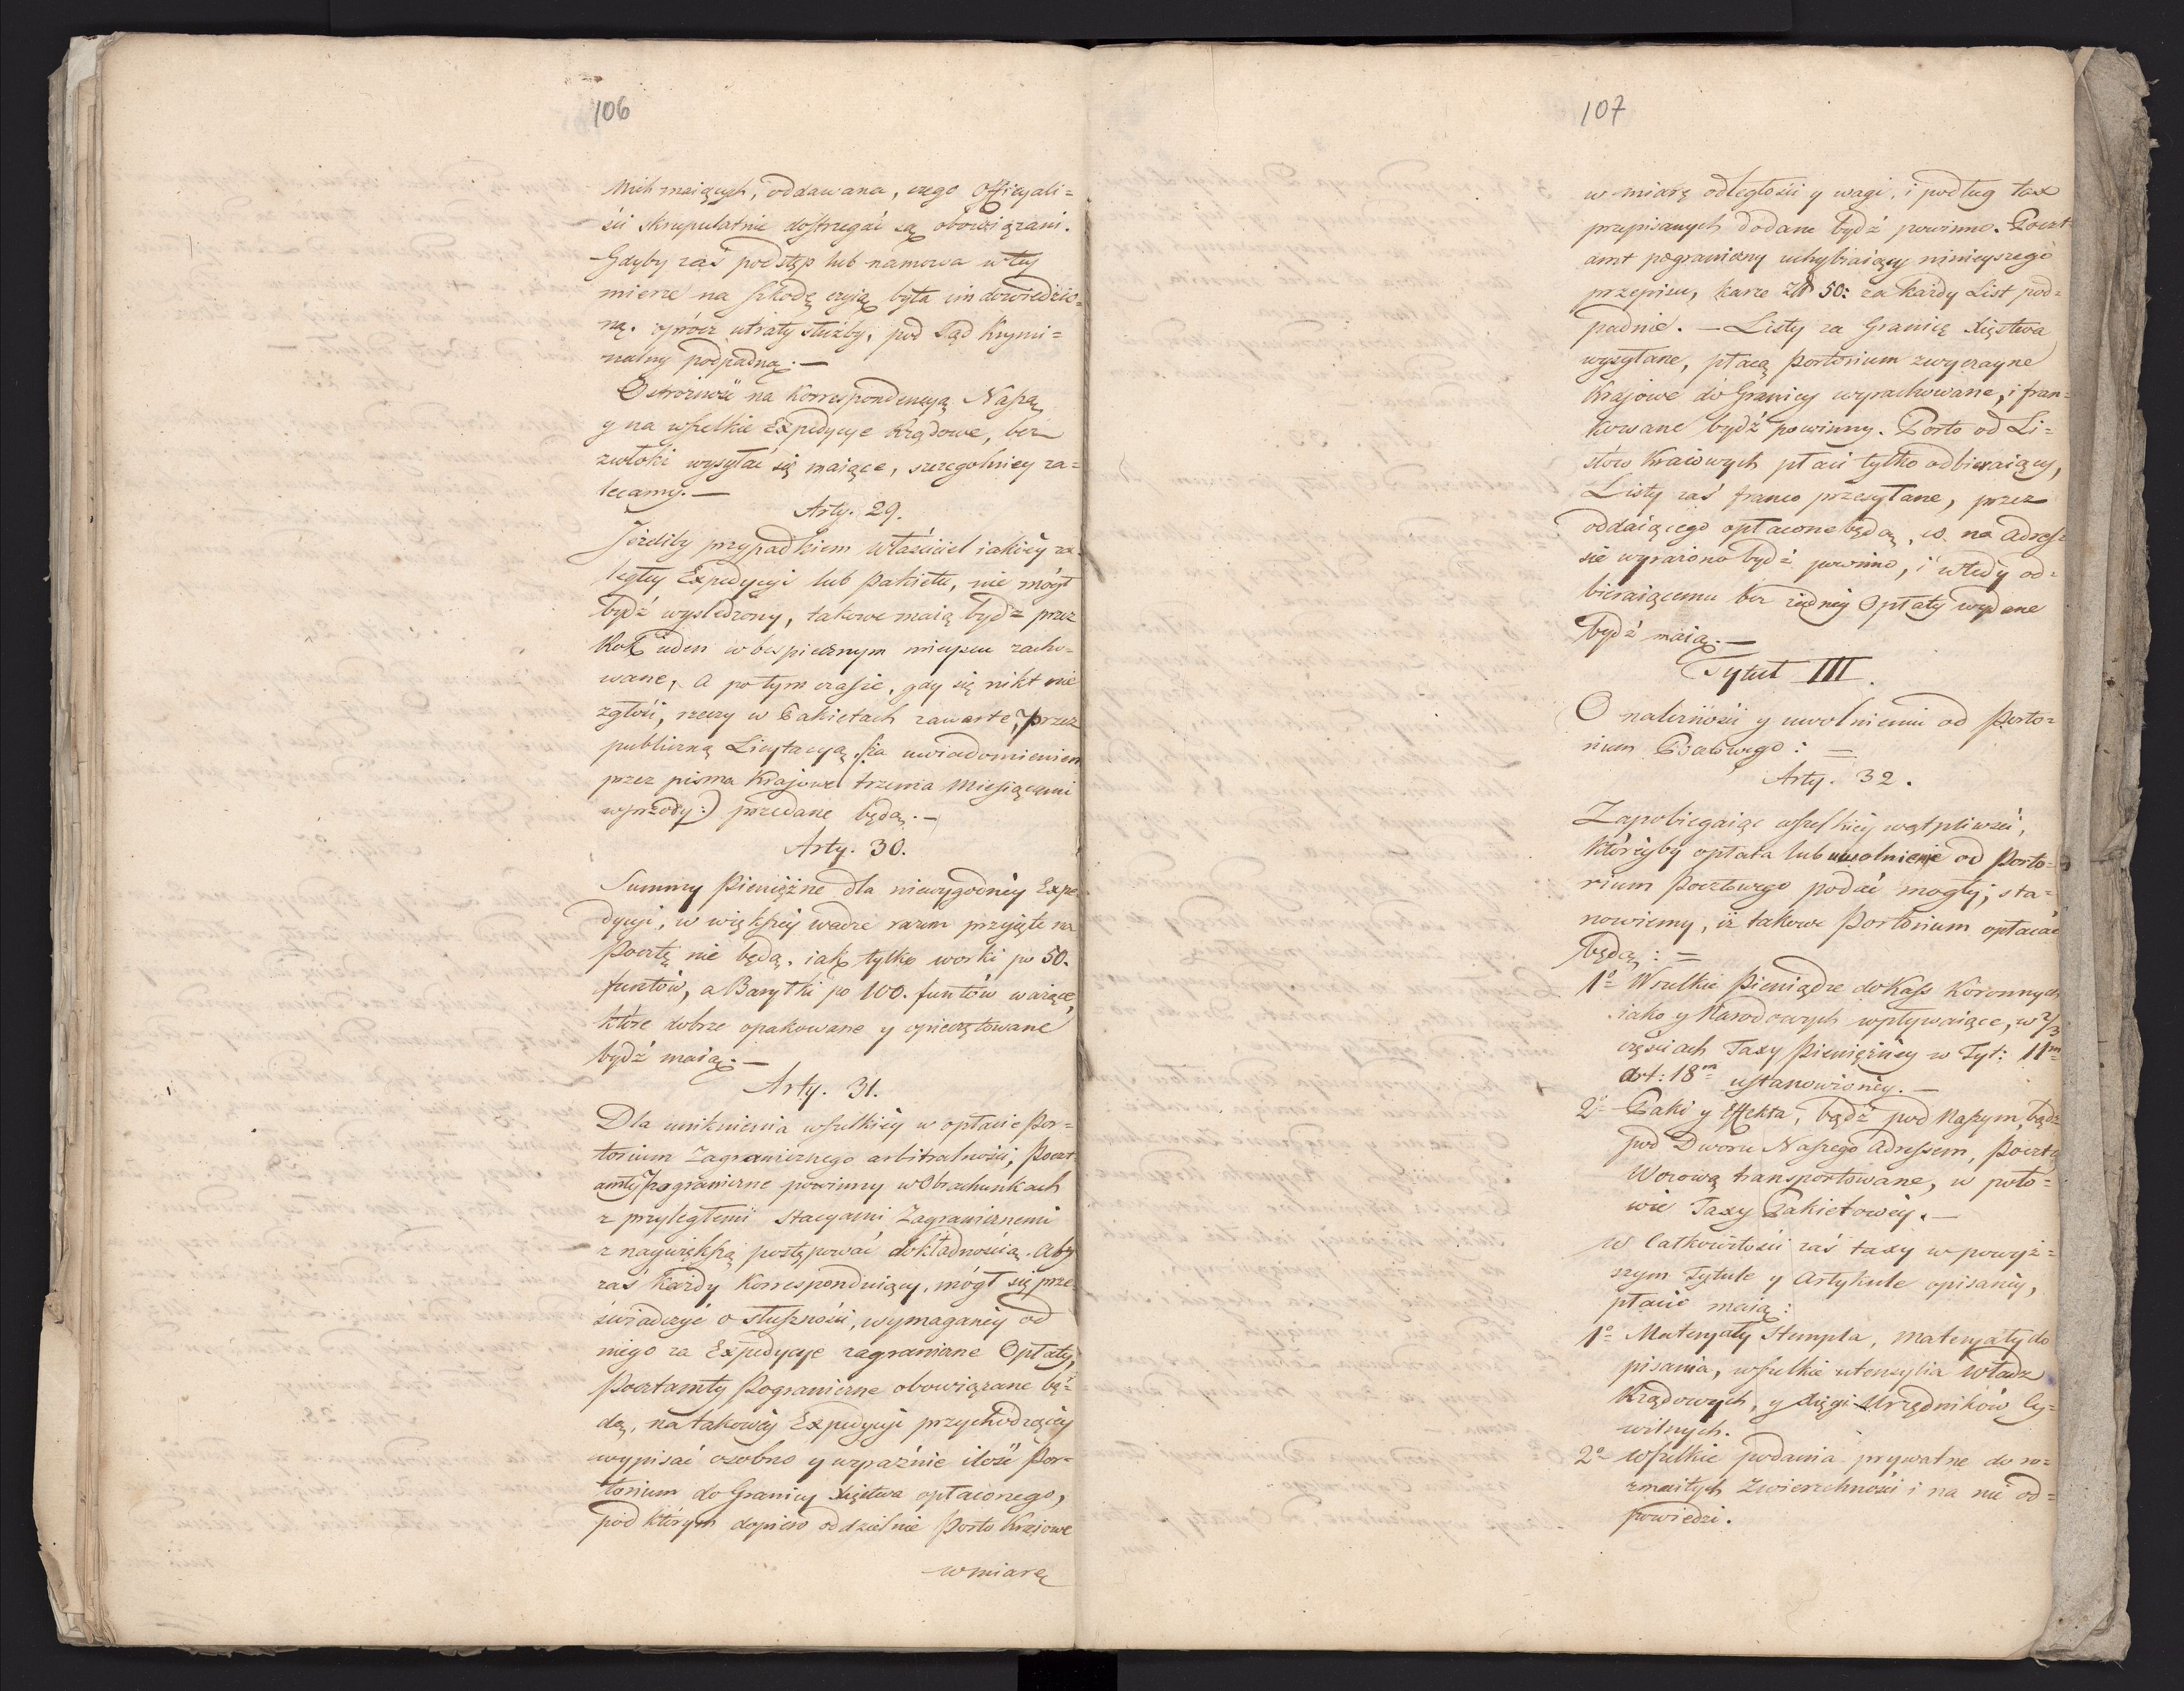 106
nich maiących, oddawana, czego Officyali=
ści skrupulatnie dostrzegać są obowiązani.
Gdyby zaś podstęp lub namowa w tey
mierze na szkodę czyią była im dowiedzio=
ną. oprócz utraty służby, pod Sąd Krymi=
nalny podpadną. —
Ostrożność na Korrespondencyą Naszą
y na wszelkie Expedycye Rządowe, bez
zwłoki wysyłać się maiące, szczegolniey za=
lecamy. —
Arty. 29.
Jeżeliby przypadkiem właściciel iakiey za=
ległey Expedycyi lub Pakietu, nie mógł
bydź wyśledzony, takowe maią bydź przez
Rok ieden w bespiecznym mieyscu zacho=
wane, a po tym czasie, gdy się nikt nie
zgłosi, rzeczy w Pakietach zawarte, przez
publiczną Licytacyą /:za uwiadomieniem
przez pisma Krajowe trzema Miesiącami
wprzody:/ przedane będą. —
Arty. 30.
Summy Pieniężne dla niewygodney Expe=
dycyi, w większey wadze razem przyięte na
Pocztę nie będą. iak tylko worki po 50.
funtów, a Baryłki po 100. funtów ważące,
które dobrze opakowane y opieczętowane
bydź maią. —
Arty. 31.
Dla uniknienia wszelkiey w opłacie Por=
torium Zagranicznego arbitralności, Poczt
amty Pograniczne powinny w Obrachunkach
z przyległemi Stacyami Zagranicznemi
z naywiększą postępować dokładnością. Aby
zaś każdy Korrespondujący, mógł się prze=
świadczyć o słuszności, wymaganey od
niego za Expedycye zagraniczne Opłaty,
Pocztamty Pograniczne obowiązane bę=
dą, na takowey Expedycyi przychodzącey
wypisać osobno y wyraźnie ilość Por=
torium do Granicy Xięstwa opłaconego,
pod którym dopiero oddzielnie Porto Krajowe
w miarę
107
w miarę odległości y wagi, i podług tax
przepisanych dodane bydź powinno. Poczt=
amt pograniczny uchybiaiący ninieyszego
przepisu, karze Zł 50: za każdy List pod=
padnie. — Listy za Granicę Xięstwa
wysyłane, płacą Portorium zwyczayne
Krajowe do Granicy wyrachowane, i fran=
kowane bydź powinny. Porto od Li=
stow Kraiowych płaci tylko odbieraiący,
Listy zaś franco przesyłane, przez
oddaiącego opłacone będą, co na Adres=
sie wyrażono bydź powinno, i wtedy od=
bieraiącemu bez żadney Opłaty wydane
bydź maią. —
Tytuł III.
O należności y uwolnieniu od Porto=
rium Pocztowego: =
Arty. 32.
Zapobiegaiąc wszelkiey wątpliwości,
któreyby opłata lub uwolnienie od Porto=
rium Pocztowego podać mogły; sta=
nowiemy, iż takowe Portorium opłacać
będą: =
1º Wszelkie Pieniądze do Kass Koronnych
iako y Narodowych wpływaiące, w 2/3
częściach Taxy Pieniężney w Tyt: IIm
Art: 18m ustanowioney. —
2º Paki y Effekta, bądź pod Naszym, bądź
pod Dworu Naszego Adressem, Pocztą
Wozową transportowane, w poło=
wie Taxy Pakietowey. —
W Całkowitości zaś taxy w powyż=
szym Tytule y Artykule opisaney,
płacić maią:
1º Materyały Stempla, materyały do
pisania, wszelkie utensylia Władz
Rządowych, y Xięgi Urzędników Cy=
wilnych.
2º Wszelkie podania prywatne do ro=
zmaitych Zwierzchności i na nie od=
powiedzi.